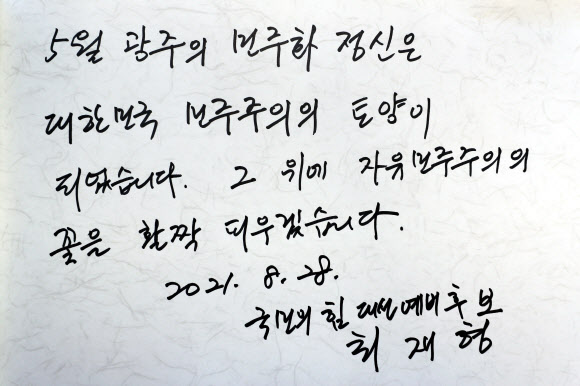 5월 광주의 민주화 정신은
대한민국 민주주의의 토양이
되었습니다. 그 위에 자유민주주의의
꽃을 활짝 피우겠습니다.
2021. 8. 28.
국민의힘 대선예비후보
최재형